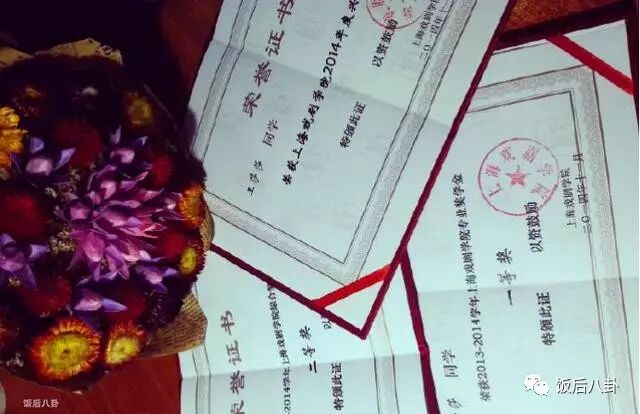 荣誉证书
王莎莎 同学
荣获上海戏剧学院2014年度
特颁此证
以资鼓励
上海戏剧学院
二〇一四年
同学
荣获2013-2014学年上海戏剧学院专业奖学金
一等奖
特颁此证
以资鼓励
上海戏剧学院
二〇一四年十一月
荣誉证书
2014学年上海戏剧学院综合
二等奖
特颁此证
饭后八卦
饭后八卦